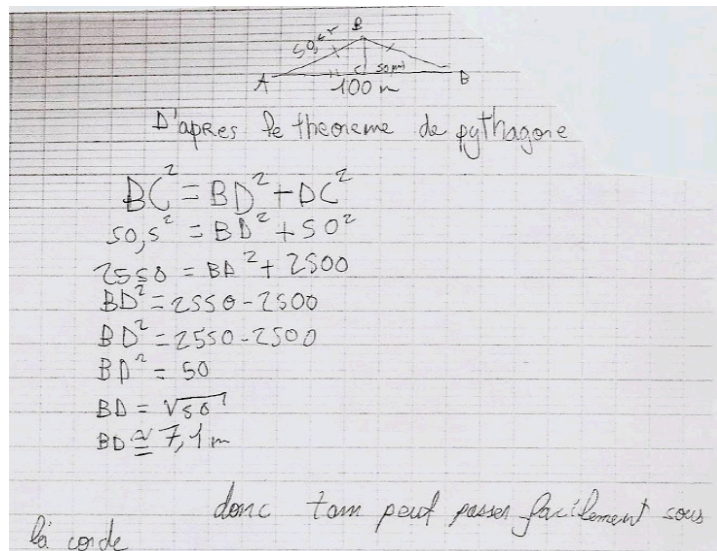 B
50,5
A
C
50 m
B
100 m
D'apres le theoreme de pythagore
BC² = BD² + DC²
50,5² = BD² + 50²
2550 = BD² + 2500
BD² = 2550 - 2500
BD² = 2550 - 2500
BD² = 50
BD = √50
BD ≃ 7,1 m
donc tom peut passer facilement sous
la corde